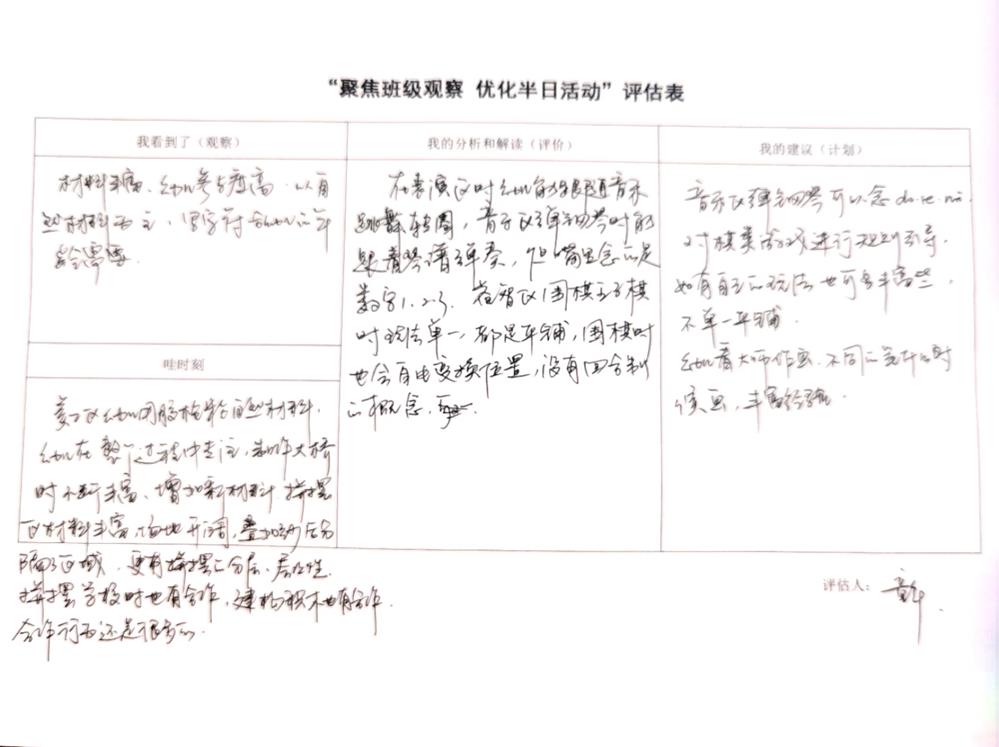 “聚焦班级观察 优化半日活动”评估表
我看到了（观察）
材料丰富、幼儿参与度高，以自
然材料为主，内容符合幼儿的年
龄需要。
哇时刻
美工区幼儿用胶枪粘自然材料，
幼儿在整个过程中专注，制作大桥
时不断丰富、增加新材料 拼摆
区材料丰富，场地开阔，叠加
隔了区域，更有拼摆的分层、层次性
拼摆学校时也有合作，建构积木也有合作
合作行为还是很多的。
我的分析和解读（评价）
在表演区时幼儿能够跟随音乐
跳舞转圈，音乐区弹钢琴时能
跟着琴谱弹奏，但嘴里念的是
数字1.2.3. 在智区围棋五子棋
时玩法单一，都是平铺，围棋时
也会自由变换位置，没有回合制
的概念，
我的建议（计划）
音乐区弹钢琴可以念do.re.mi.
对棋类游戏进行规则引导，
如有自主的玩法也可多丰富些，
不单一平铺.
幼儿看大师作画，不同的
画，丰富经验.
评估人：